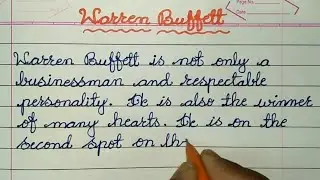 Warren Buffett
Warren Buffett is not only a
businessman and respectable
personality. He is also the winner
of many hearts. He is on the
second spot on th